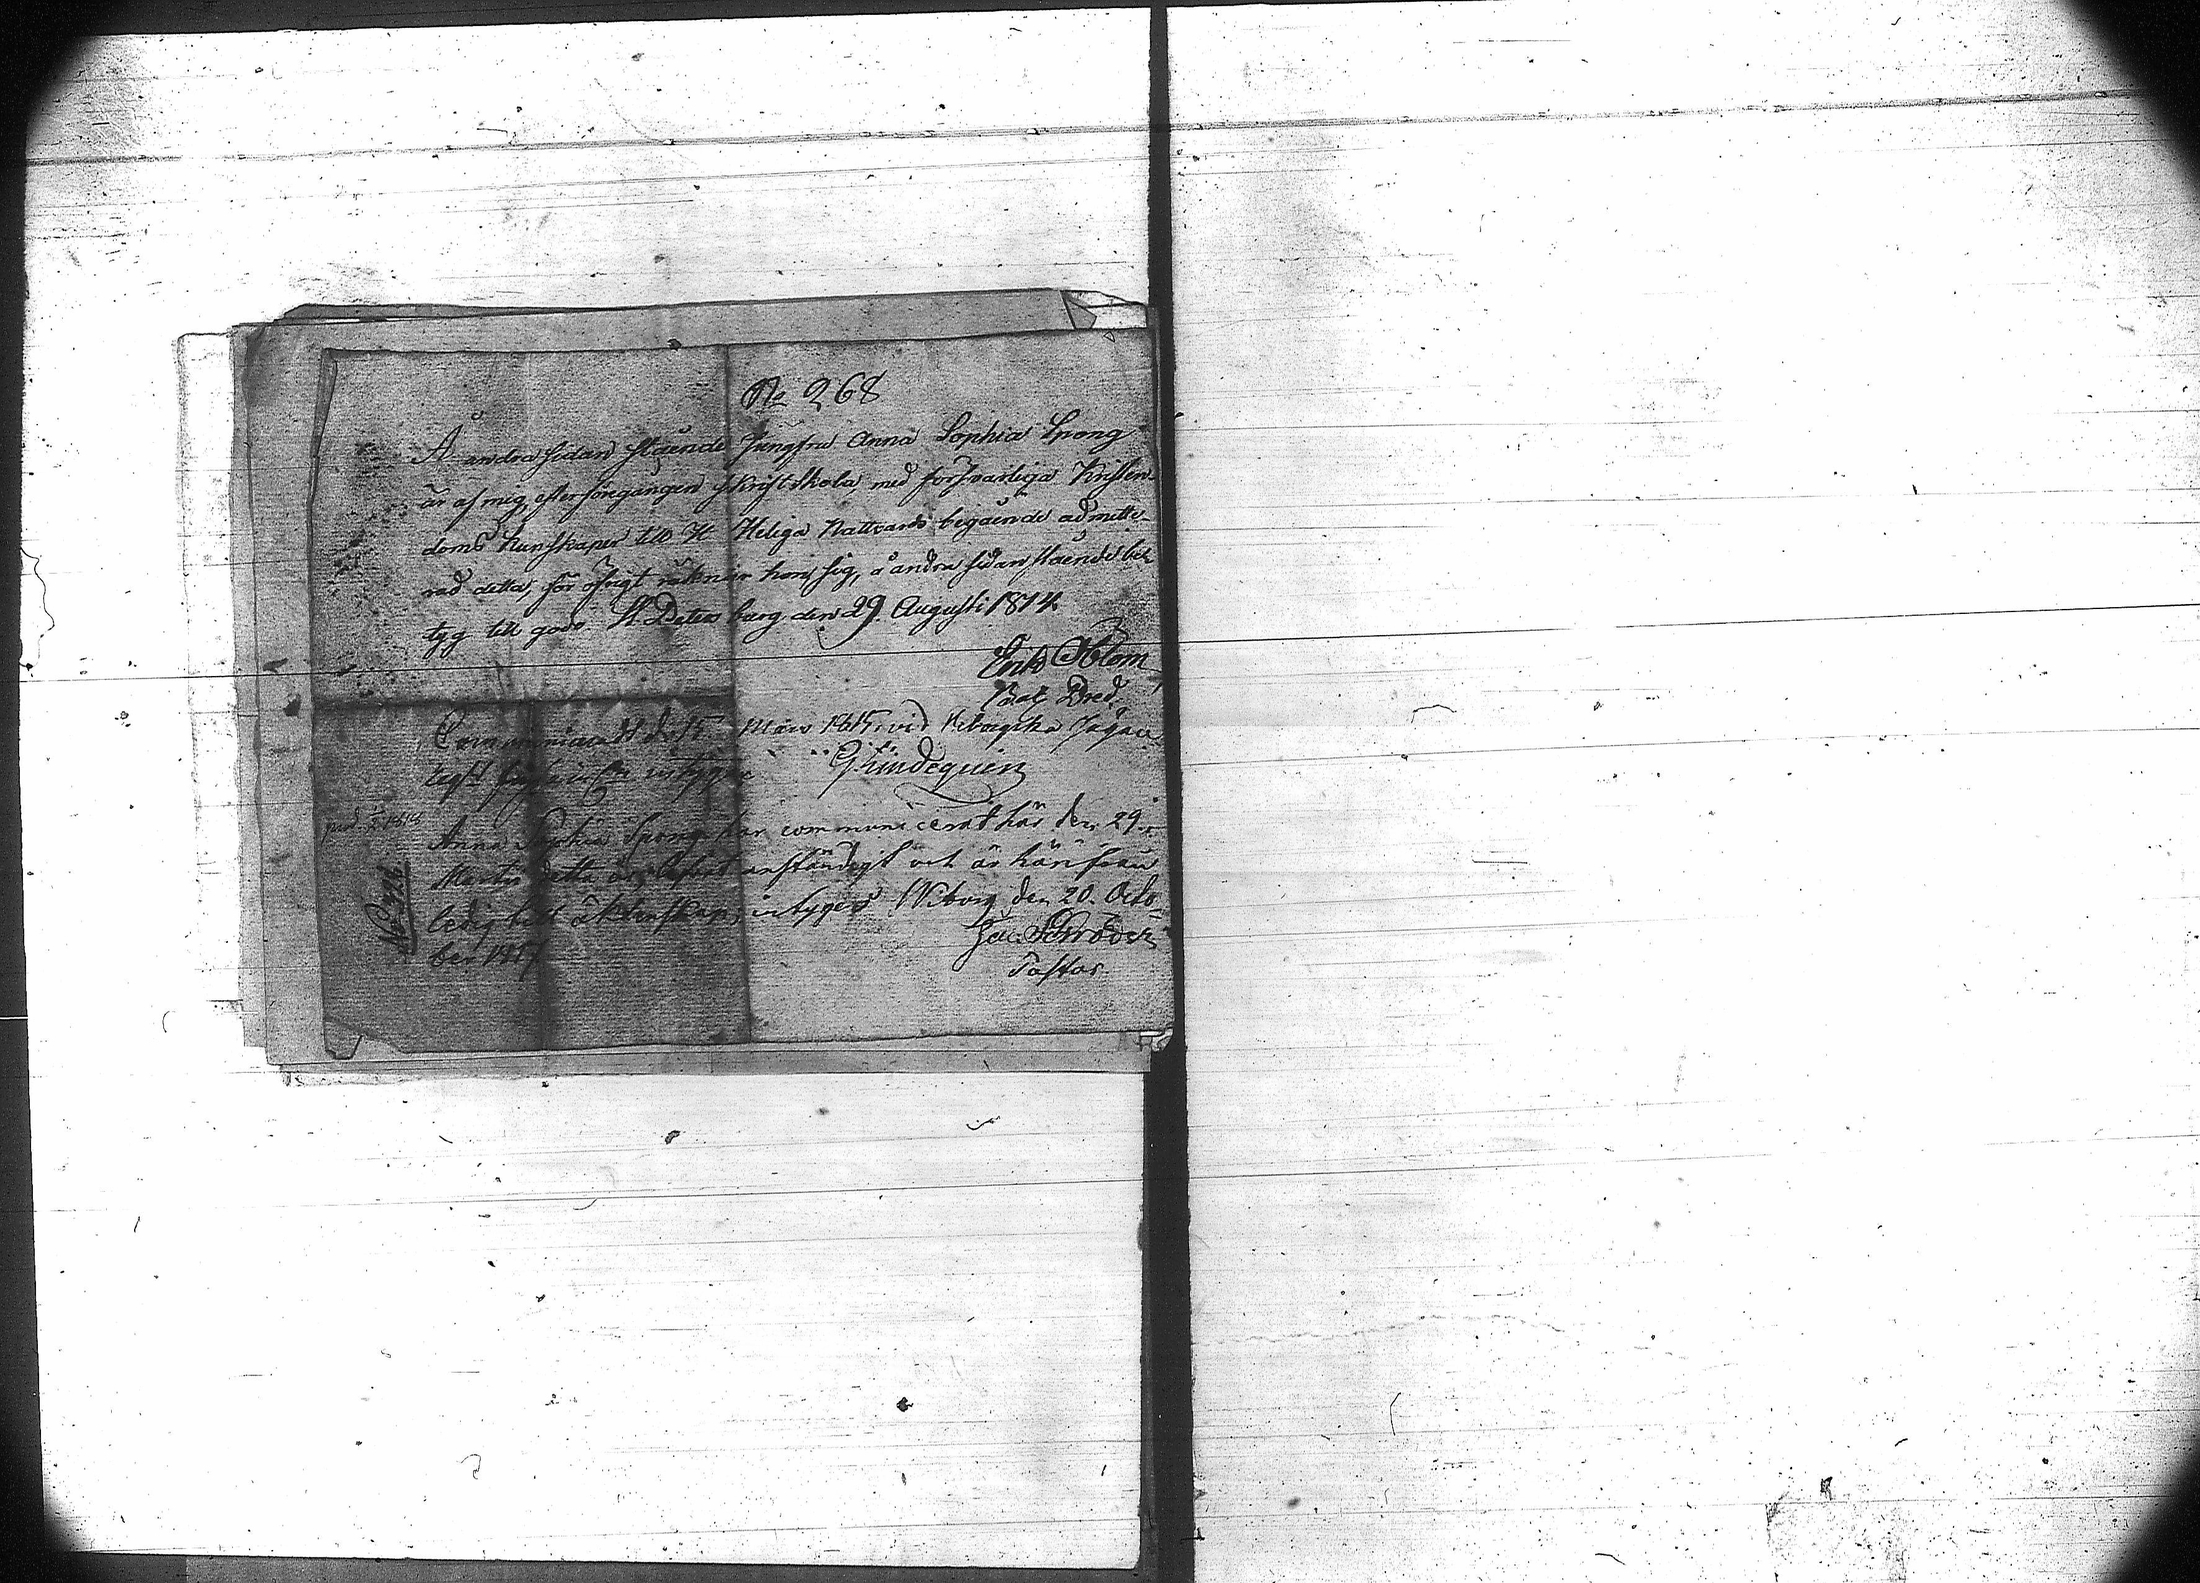 No 268
Å andra sidan stående Jungfru Anna Sophia Spong
är af mig, efter föregången Skriftskola, med försvarliga Kristen-
doms Kunskaper till H Heliga Nattvards begående admitte-
rad detta, för öfrigt räknar hon sig, å andra sidan stående be-
tyg till godo St. Petersburg den 29. Augusti 1814.
Erik
Bat. Pred.
Communicerat d. 15 Mars 1815 vid Wiborgska Jägare
intygar G. Lindequien
Anna Sophia Spong har communicerat här den 29.
Martii detta år, anständigt och är härifrån
ledig till äktenskap, intygas Wiborg den 20. Octo-
ber 1817
Jac. Schröder
Pastor